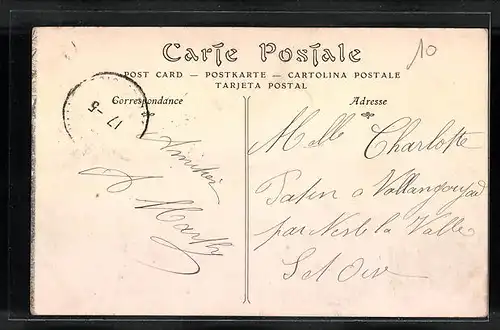 Carte Postale
10
POST CARD — POSTKARTE — CARTOLINA POSTALE
TARJETA POSTAL
Correspondance
Adresse
17 -5
Melle Charlotte
Patin a Vallangoujad
par Nesle la Vallee
S et Oise